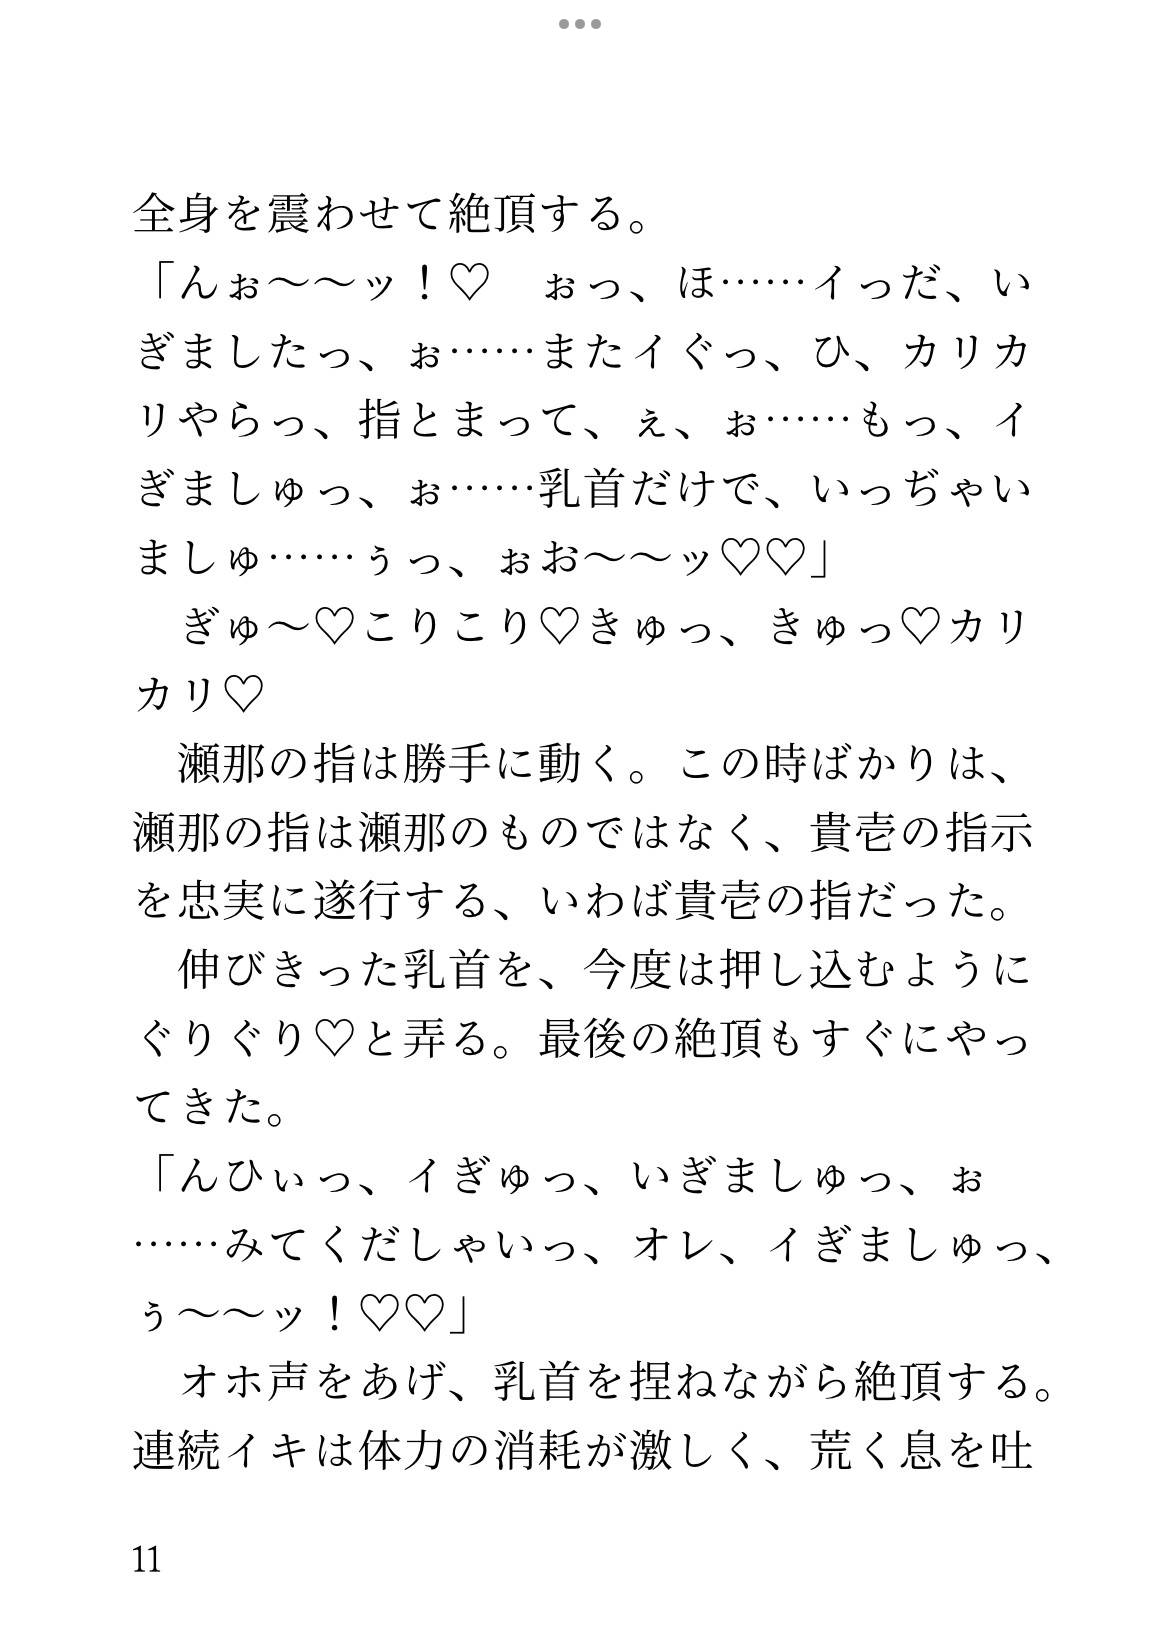 全身を震わせて絶頂する。
「んぉ〜〜ッ！♡　ぉっ、ほ……イっだ、い
ぎましたっ、ぉ……またイぐっ、ひ、カリカ
リやらっ、指とまって、ぇ、ぉ……もっ、イ
ぎましゅっ、ぉ……乳首だけで、いっぢゃい
ましゅ……ぅっ、ぉお〜〜ッ♡♡」
　ぎゅ〜♡こりこり♡きゅっ、きゅっ♡カリ
カリ♡
　瀬那の指は勝手に動く。この時ばかりは、
瀬那の指は瀬那のものではなく、貴壱の指示
を忠実に遂行する、いわば貴壱の指だった。
　伸びきった乳首を、今度は押し込むように
ぐりぐり♡と弄る。最後の絶頂もすぐにやっ
てきた。
「んひぃっ、イぎゅっ、いぎましゅっ、ぉ
……みてくだしゃいっ、オレ、イぎましゅっ、
ぅ〜〜ッ！♡♡」
　オホ声をあげ、乳首を捏ねながら絶頂する。
連続イキは体力の消耗が激しく、荒く息を吐
11